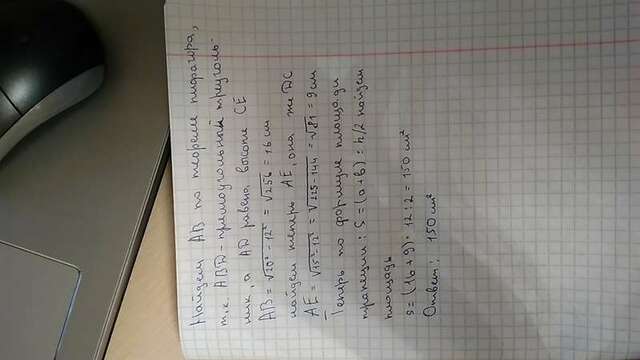 Найдем АВ по теореме пифагора,
т.к. ABD - прямоугольный треуголь-
ник, а AD равена высоте CE
AB = √20² - 12² = √256 = 16 см
найдем теперь AE, она же DC
AE = √15² - 12² = √225 - 144 = √81 = 9 см
Теперь по формуле площади
трапеции : S = (a + b) : h/2 найдем
площадь
S = (16 + 9) · 12 : 2 = 150 см²
Ответ : 150 см²